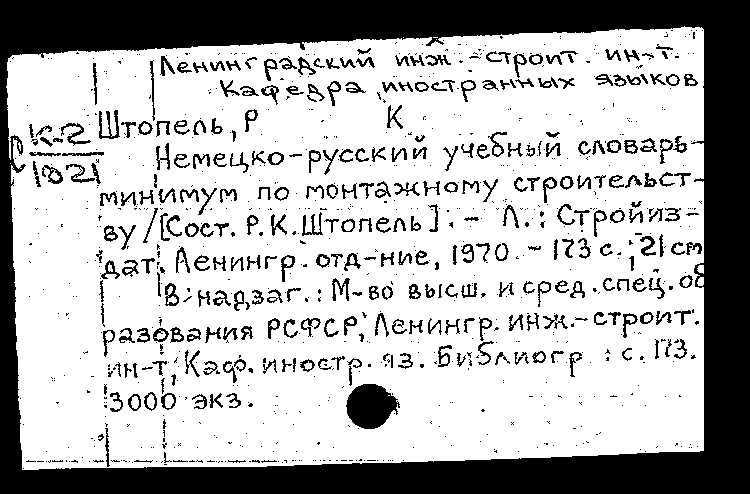 Ленинградский инж.-строит. ин-т.
Кафедра иностранных языков
К-2
1821
Штопель, Р К
Немецко-русский учебный словарь-
минимум по монтажному строительст-
ву / [Сост. Р.К. Штопель]. - Л.: Стройиз-
дат. Ленингр. отд-ние, 1970. - 173 с.; 21 см
В надзаг.: М-во высш. и сред. спец. об
разования РСФСР, Ленингр. инж.-строит.
ин-т, Каф. иностр. яз. Библиогр : с. 173.
3000 экз.